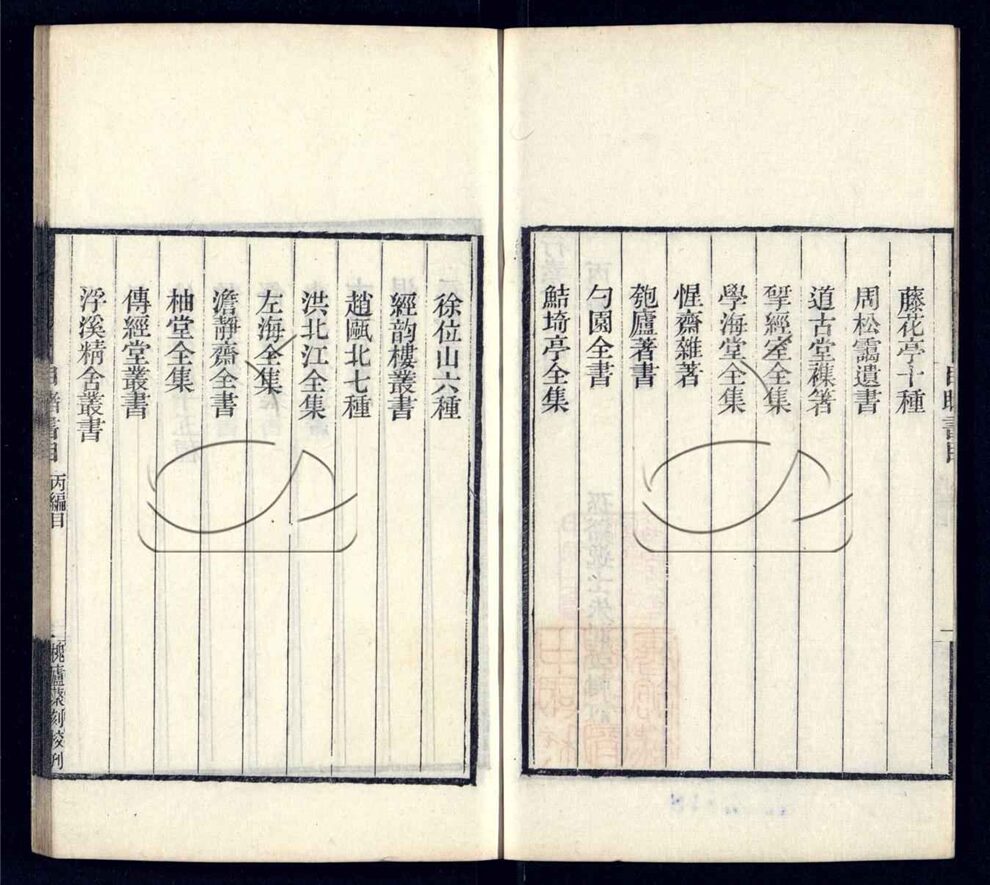 藤花亭十種
周松靄遺書
道古堂襍箸
揅經室全集
學海堂全集
惺齋雜著
匏廬著書
勺園全書
鮚埼亭全集
徐位山六種
經韵樓叢書
趙甌北七種
洪北江全集
左海全集
澹靜齋全書
柚堂全集
傳經堂叢書
浮溪精舍叢書
丙編目